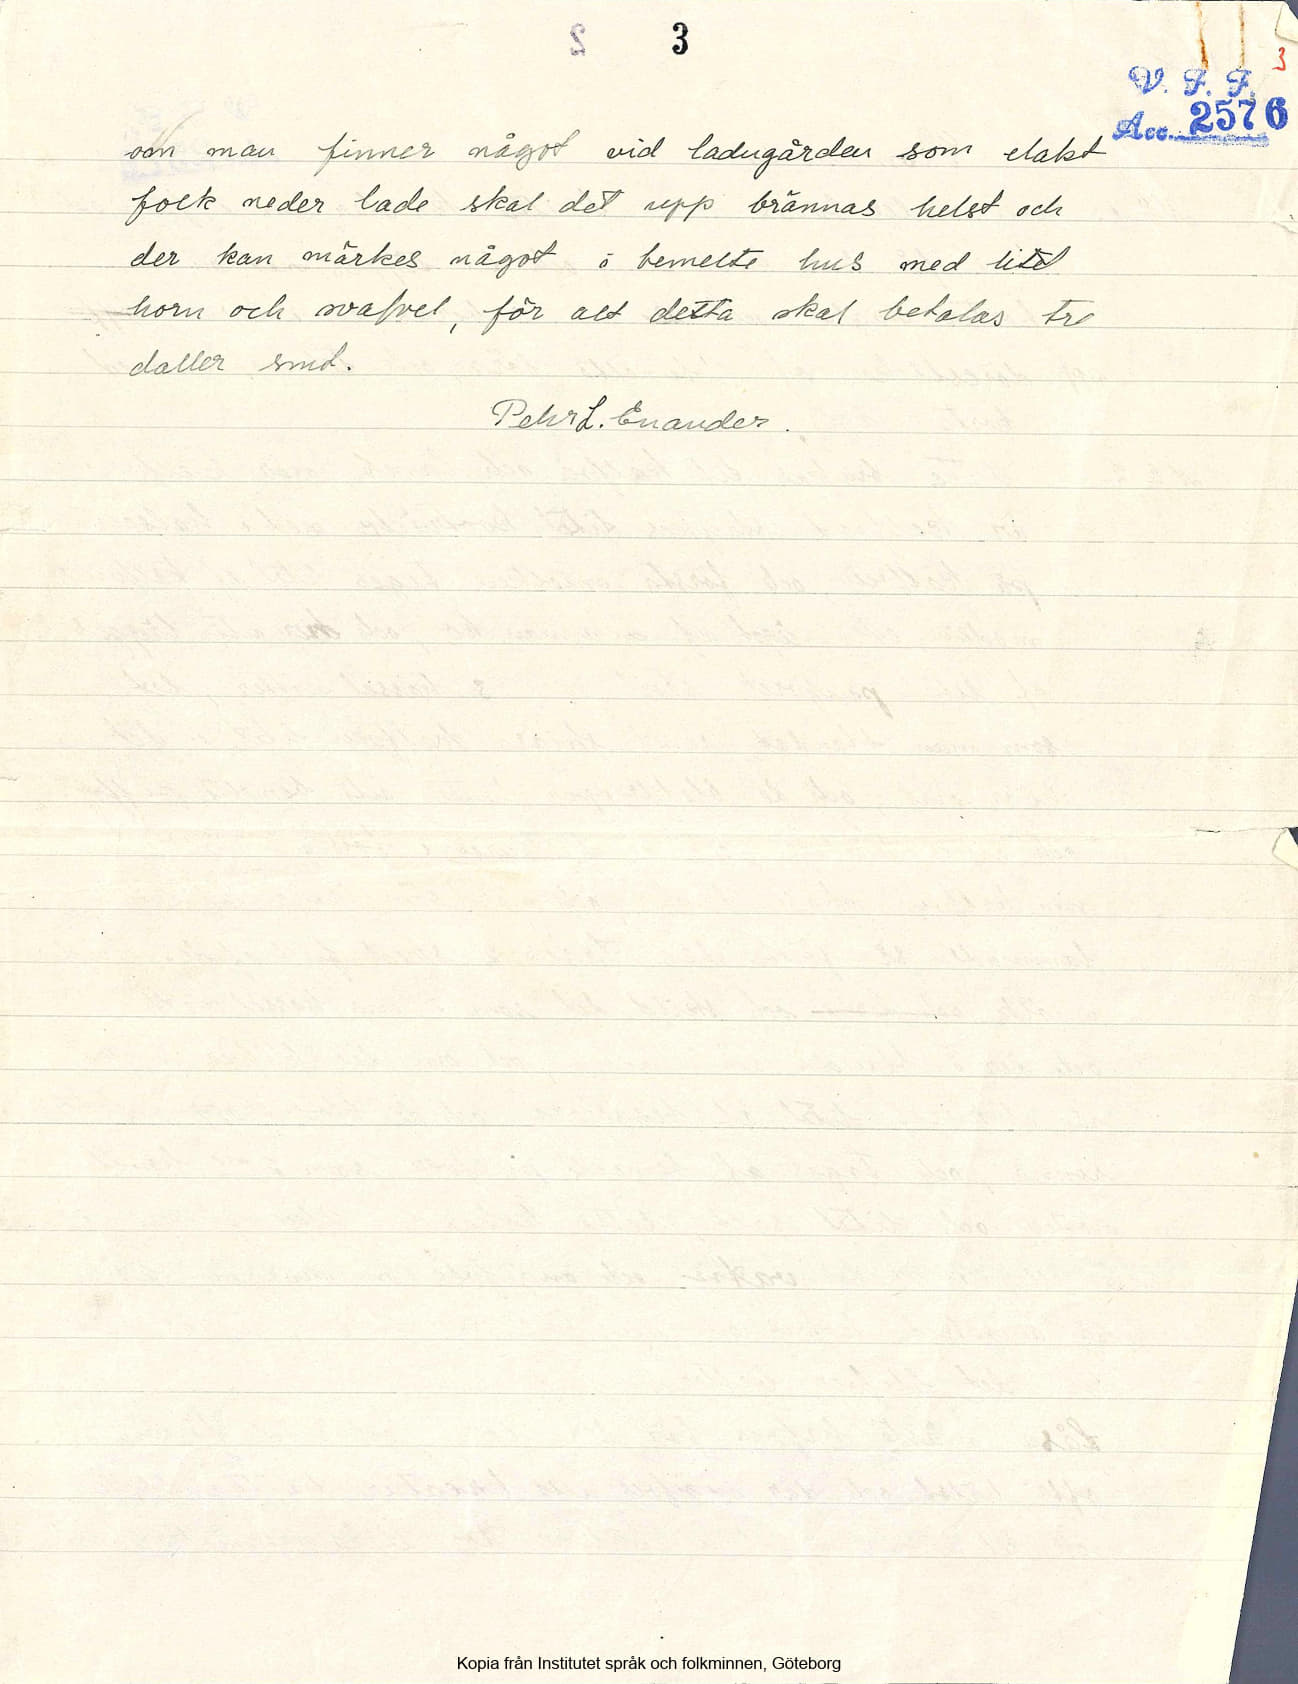 3
3
V. F. F.
Acc. 2576
om man finner något vid ladugården som elakt
folk neder lade skal det upp brännas helst och
der kan märkes något i bemelte hus med litet
horn och svafvel, för alt detta skal betalas tre
daller smt.
Pehr L. Enander.
Kopia från Institutet språk och folkminnen, Göteborg